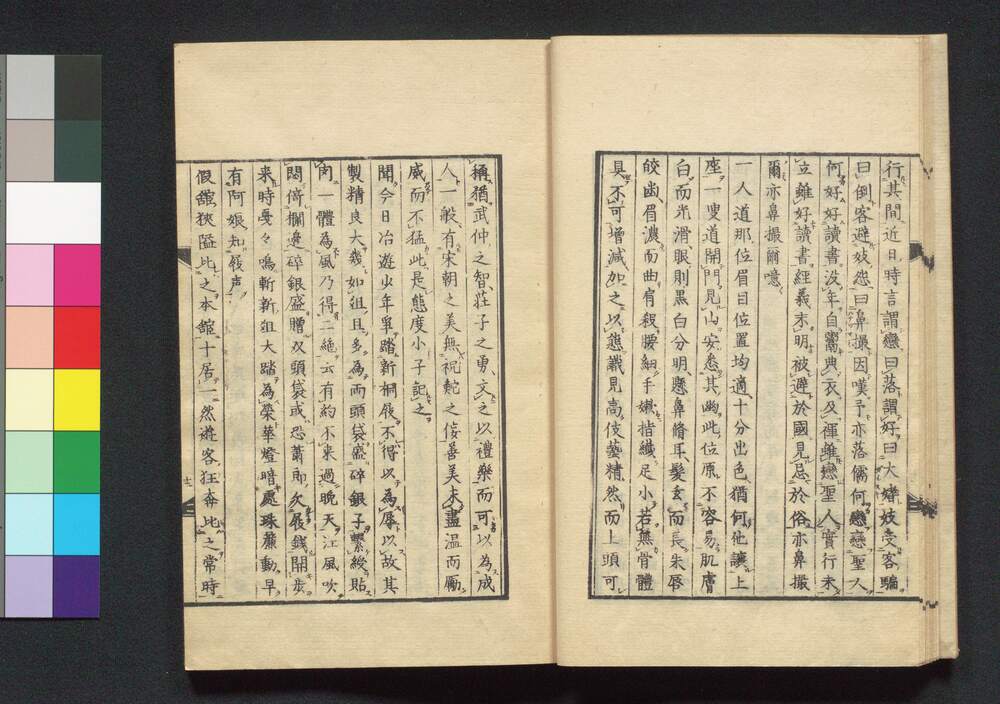 行其間近日時言謂戀曰落謂好曰大嬉妓受客騙
曰倒客避妓怨曰鼻撮因嘆予亦落儒何戀戀聖人
何好好讀書沒年自鬻典衣及褌雖戀聖人實行未
立雖好讀書經義未明被避於國見忌於俗亦鼻撮
爾亦鼻撮爾噫
一人道那位眉目位置均適十分出色猶何他讓上
座一叟道開門見山安悉其幽此位原不容易肌膚
白而光滑眼則黑白分明懸鼻脩耳髮玄而長朱唇
皎齒眉濃而曲肩殺腰細手嫩指纖足小若無骨體
具不可增減加之以態義見高伎藝精然而上頭可
稱猶武仲之智莊子之勇文之以禮樂而可以為成
人一般有宋朝之美無祝鮀之佞善美未盡溫而厲
威而不猛此是態度小子記之
聞今日冶遊少年爭踏新桐屐不得以為辱以故其
製精良大幾如俎且多為兩頭袋盛碎銀子繫綬貼
肉一體為風乃得二絕云有約不来過晚天江風吹
閟倚欄邊碎銀盛贈双頭袋或恐蕭郎欠屐錢開步
来時戞々鳴嶄新俎大踏為榮華燈暗處珠簾動早
有阿娘知屐声
假舘狹隘比之本舘十居一然遊客狂奔比之常時
十一